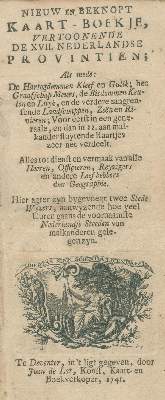 NIEUW en BEKNOPT
KAART-BOEKJE,
VERTOONENDE
DE XVII. NEDERLANDSE
PROVINTIEN;
Als mede:
De Hertogdommen Kleef en Gulik; het
Graafschap Meurs, de Bisdommen Keu-
len en Luyk, en de verdere aangren-
sende Landschappen, Zeën en Ri-
vieren; Voor eerst in een gene-
raale, en dan in 22. aan mal-
kander sluytende Kaartjes
zeer net verdeelt.
Alles tot dienst en vermaak van alle
Heeren, Officieren, Reyzigers
en andere Liefhebbers
der Geographie.
Hier agter zyn bygevoegt twee Stede
Wyzers, aanwyzende hoe veel
Uuren gaans de voornaamste
Nederlandse Steeden van
malkanderen gele-
gen zyn.
Te Deventer, in 't ligt gegeven, door
Jan de Lat, Konst, Kaart- en
Boekverkoper, 1741.